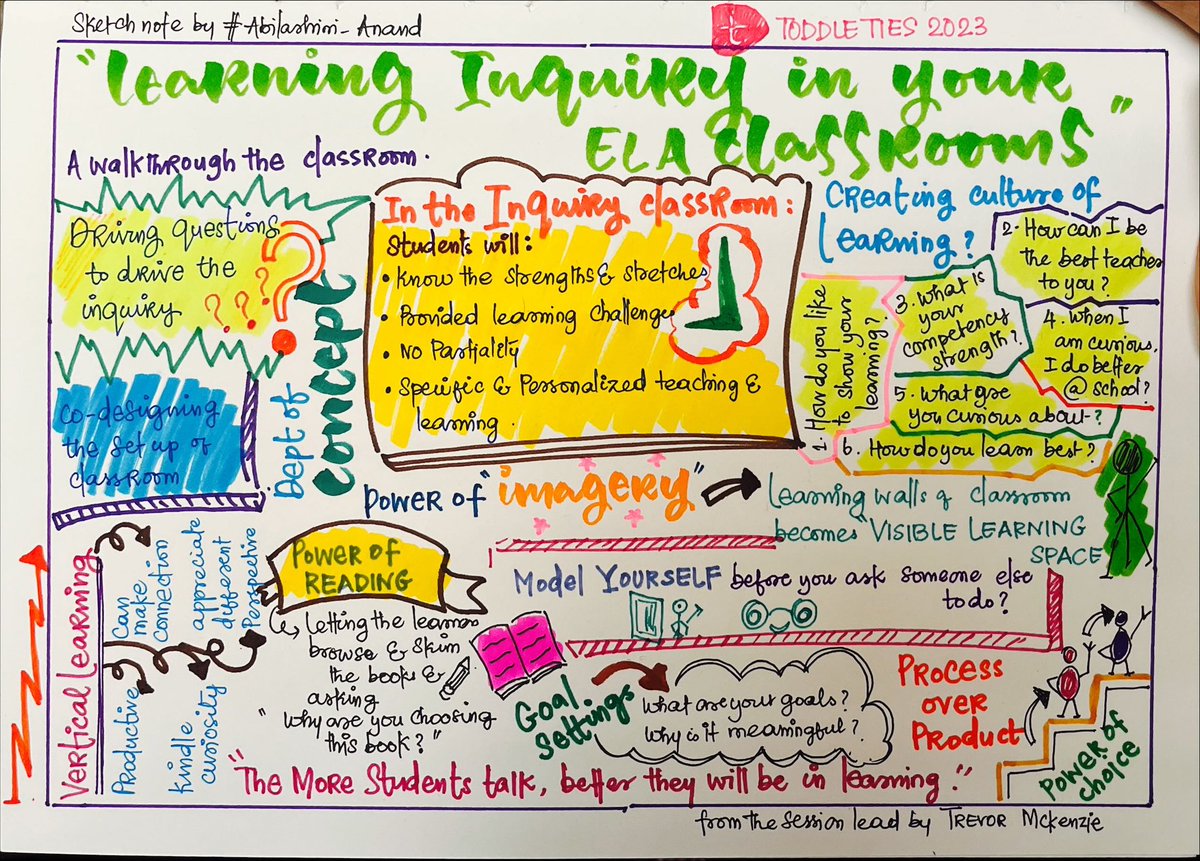 Sketch note by #Abilashini_Anand
t TODDLE TIES 2023
"Learning Inquiry in your
ELA classrooms"
A walkthrough the classroom.
Driving questions
to drive the
inquiry
? ? ? ?
co-designing
the set up of
classroom
Dept of
concept
In the Inquiry classroom:
Students will:
• Know the strengths & stretches
• Provided learning challenge
• No Partialety
• Specific & Personalized teaching &
learning.
Creating culture of
learning?
1. How do you like
to show your
learning?
2. How can I be
the best teacher
to you?
3. what is
your
competency
strength?
4. when I
am curious,
I do better
@ school?
5. What are
you curious about?
6. How do you learn best?
Power of "imagery"
Learning walls of classroom
becomes "VISIBLE LEARNING
SPACE
Vertical Learning
Can
make
connection
appreciate
different
Perspective
Productive
kindle
curiosity
Power of
READING
Letting the learners
browse & skim
the books &
asking
"why are you choosing
this book?"
Model YOURSELF before you ask someone else
to do?
Goal
settings
what are your goals?
why is it meaningful?
Process
over
Product
Power of
choice
"The More Students talk, better they will be in learning."
from the session lead by TREVOR McKenzie